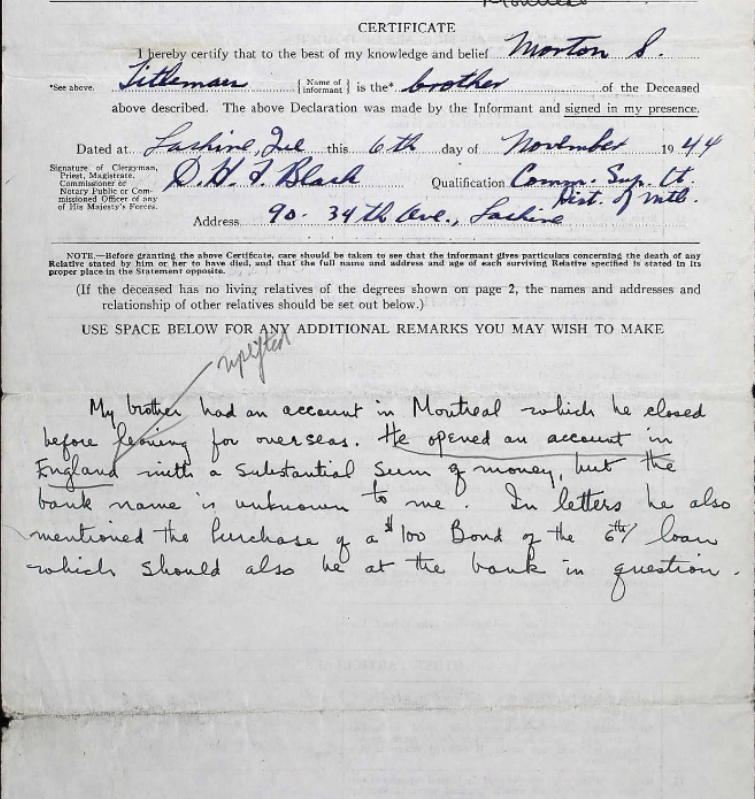 CERTIFICATE
I hereby certify that to the best of my knowledge and belief Morton S.
*See above. Titleman { Name of informant } is the* brother of the Deceased
above described. The above Declaration was made by the Informant and signed in my presence.
Dated at Lachine, Que this 6th day of November 1944
Signature of Clergyman,
Priest, Magistrate,
Commissioner or
Notary Public or Com-
missioned Officer of any
of His Majesty's Forces.
D. H. F. Black Qualification Comm. Sup. Ct
Dist. of Mtl.
Address 90. 34th Ave., Lachine
NOTE.—Before granting the above Certificate, care should be taken to see that the informant gives particulars concerning the death of any
Relative stated by him or her to have died, and that the full name and address and age of each surviving Relative specified is stated in its
proper place in the Statement opposite.
(If the deceased has no living relatives of the degrees shown on page 2, the names and addresses and
relationship of other relatives should be set out below.)
USE SPACE BELOW FOR ANY ADDITIONAL REMARKS YOU MAY WISH TO MAKE
uplifted
My brother had an account in Montreal which he closed
before leaving for overseas. He opened an account in
England with a substantial sum of money, but the
bank name is unknown to me. In letters he also
mentioned the purchase of a $100 Bond of the 6th loan
which should also be at the bank in question.